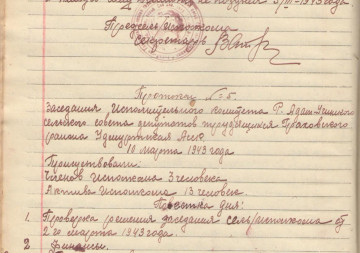 3/III-1943 года
Председ/исполкома
Секретарь
Протокол № 5.
Заседания исполнительного комитета Р. Адам-Учинского
сельского совета депутатов трудящихся Граховского
района Удмуртская АССР.
10 марта 1943 года
Присутствовали:
Членов исполкома 3 человека
Актива исполкома 13 человек.
Повестка дня:
1. Проверка решения заседания сель/исполкома от
2го марта 1943 года.
2 Финансы.